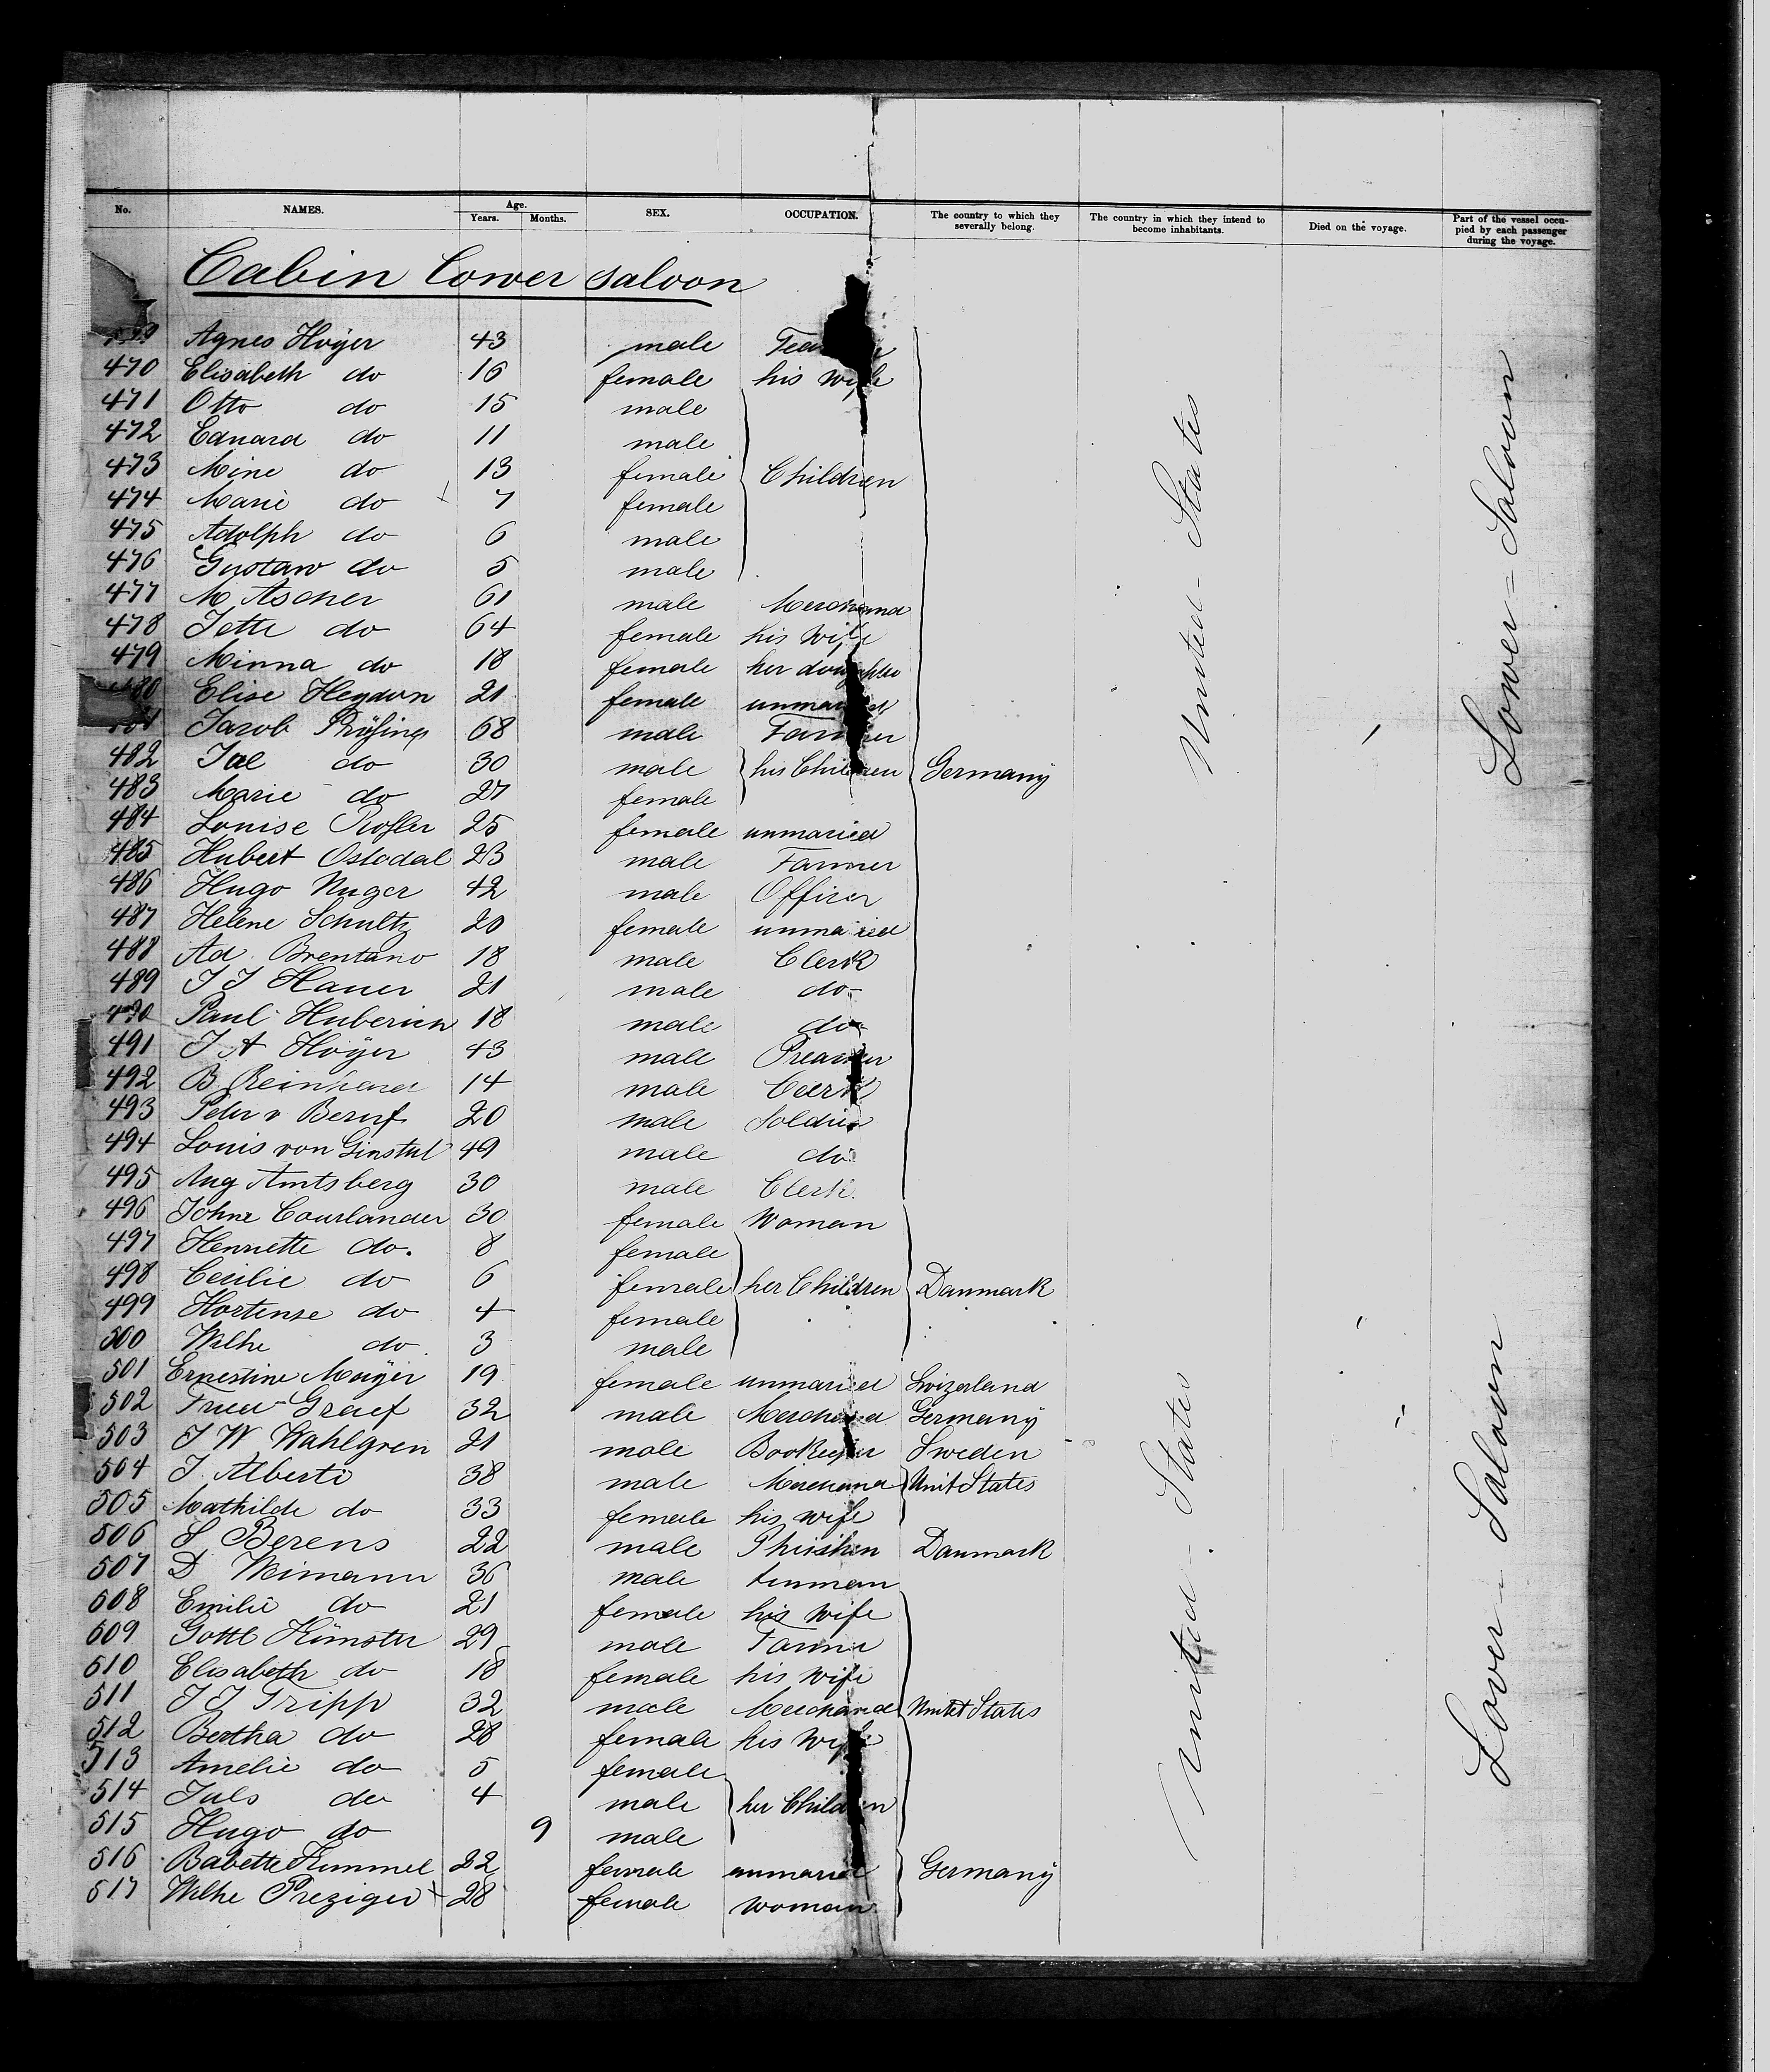 No. NAMES. Age. Years. Months. SEX. OCCUPATION. The country to which they severally belong. The country in which they intend to become inhabitants. Died on the voyage. Part of the vessel occupied by each passenger during the voyage.
Cabin Lower Saloon
Agnes Hoÿer 43 male
470 Elisabeth do 16 female his wife
471 Otto do 15 male
472 Eduard do 11 male
473 Mine do 13 female Children
474 Marie do 7 female
475 Adolph do 6 male
476 Gustaw do 5 male
477 M Ascher 61 male Merchand
478 Jette do 64 female his wife
479 Minna do 18 female her doughter
480 Elise Heydorn 21 female unmaried
481 Jacob 68 male Farmer
482 do 30 male his Children Germany
483 Marie do 27 female
484 Louise 25 female unmaried
485 Hubert Ostodal 23 male Farmer
486 Hugo Nuger 42 male Officer
487 Helene Schultz 20 female unmaried
488 Ad. Brentano 18 male Clerk
489 J J Hauer 21 male do
490 Paul Huberich 18 male do
491 J A Hoÿer 43 male Preacher
492 B Reinhard 14 male Clerk
493 Peter v 20 male Soldier
494 Louis von 49 male do
495 Aug Amtsberg 30 male Clerk
496 Johne Courlander 30 female Woman
497 Henriette do. 8 female
498 Cecilie do 6 female her Children Danmark
499 Hortense do 4 female
500 Wilhe do 3 male
501 Ernestine Mayër 19 female unmaried Swizerland
502 Graef 32 male Merchand Germany
503 J W Wahlgren 21 male Bookeeper Sweden
504 J. Alberti 38 male Merchand Unit States
505 Mathilde do 33 female his wife
506 S Berens 22 male Danmark
507 D Weimann 36 male tinman
508 Emilie do 21 female his wife
509 Gottl 29 male Farmer
510 Elisabeth do 18 female his wife
511 J J Tripp 32 male Merchand Unitet States
512 Bertha do 28 female his wife
513 Amelie do 5 female
514 Juls do 4 male her Children
515 Hugo do 9 male
516 Babette Kimmel 22 female unmaried Germany
517 Wilhe Preziger 28 female woman
United States
Lower = Saloon
United States
Lover - Saloon